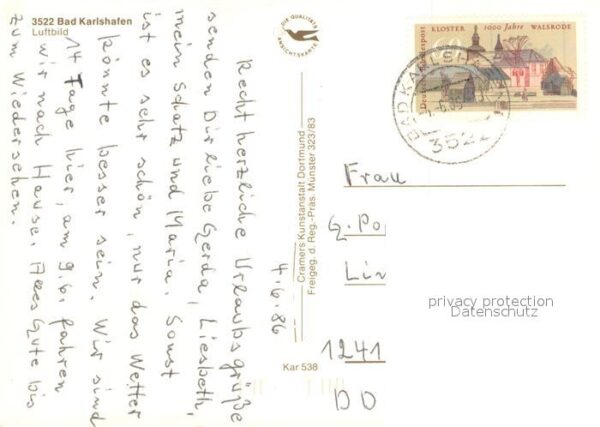 3522 Bad Karlshafen
Luftbild
DIE QUALITÄTS
ANSICHTSKARTE
Deutsche Bundespost
60
KLOSTER 1000 Jahre WALSRODE
BAD KARLSHAFEN
3522
4.6.86
Recht herzliche Urlaubsgrüße
senden Dir liebe Gerda, Liesbeth,
mein Schatz und Maria. Sonst
ist es sehr schön, nur das Wetter
könnte besser sein. Wir sind
14 Tage hier, am 9.6. fahren
wir nach Hause. Alles Gute bis
zum Wiedersehen.
Cramers Kunstanstalt Dortmund
Freigeg. d. Reg.-Präs. Münster 323/83
Kar 538
Frau
G. Po
Lin
1241
DD
privacy protection
Datenschutz